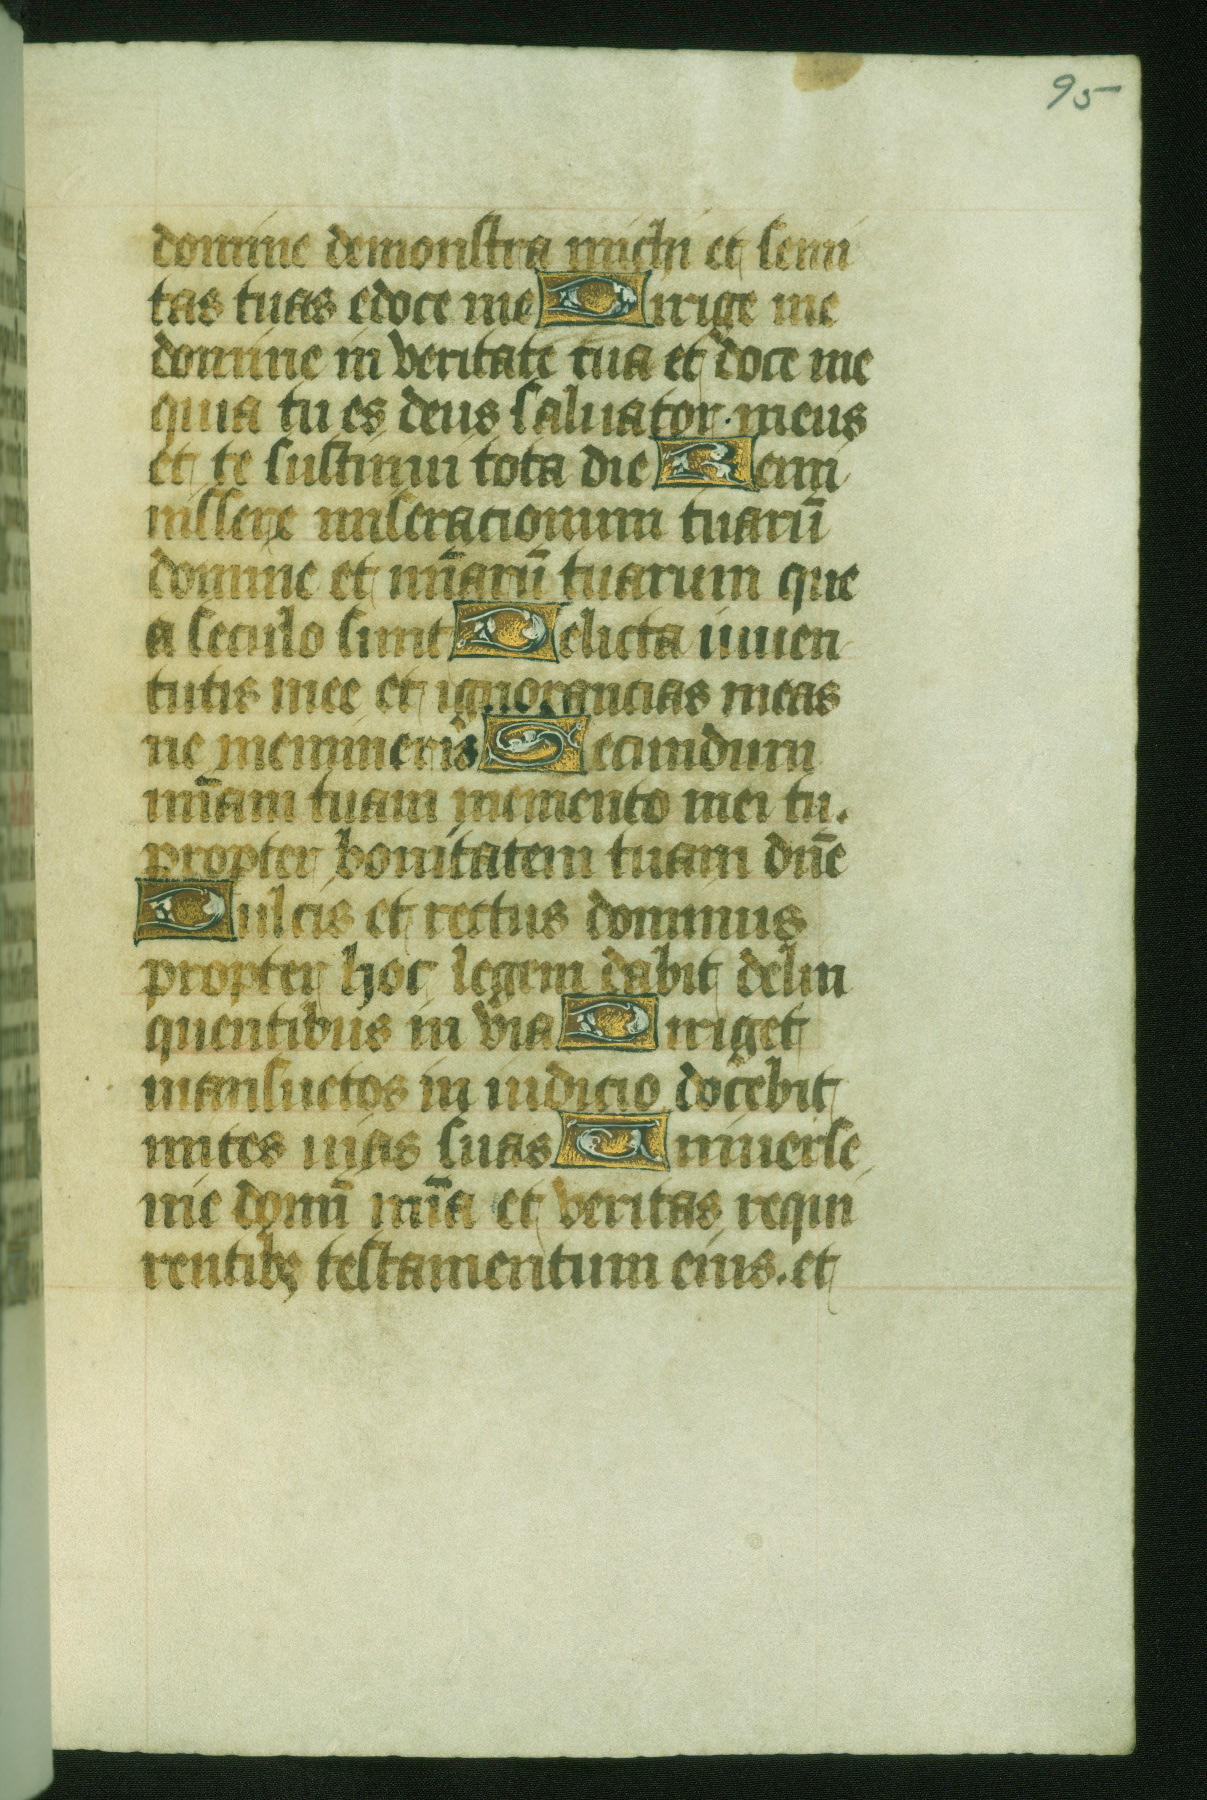 95
domine demonstra michi et semi
tas tuas edoce me Dirige me
domine in veritate tua et doce me
quia tu es deus saluator meus
et te sustinui tota die Remi
nissere miseracionum tuarū
domine et mīarū tuarum que
a seculo sunt Delicta iuuen
tutis mee et ignorancias meas
ne memineris Secundum
mīam tuam memento mei tu.
propter bonitatem tuam dñe
Dulcis et rectus dominus
propter hoc legem dabit delin
quentibus in via Diriget
mansuetos in iudicio docebit
mites uias suas Uniuerse
uie domī mīa et veritas requi
rentibꝫ testamentum eius. et